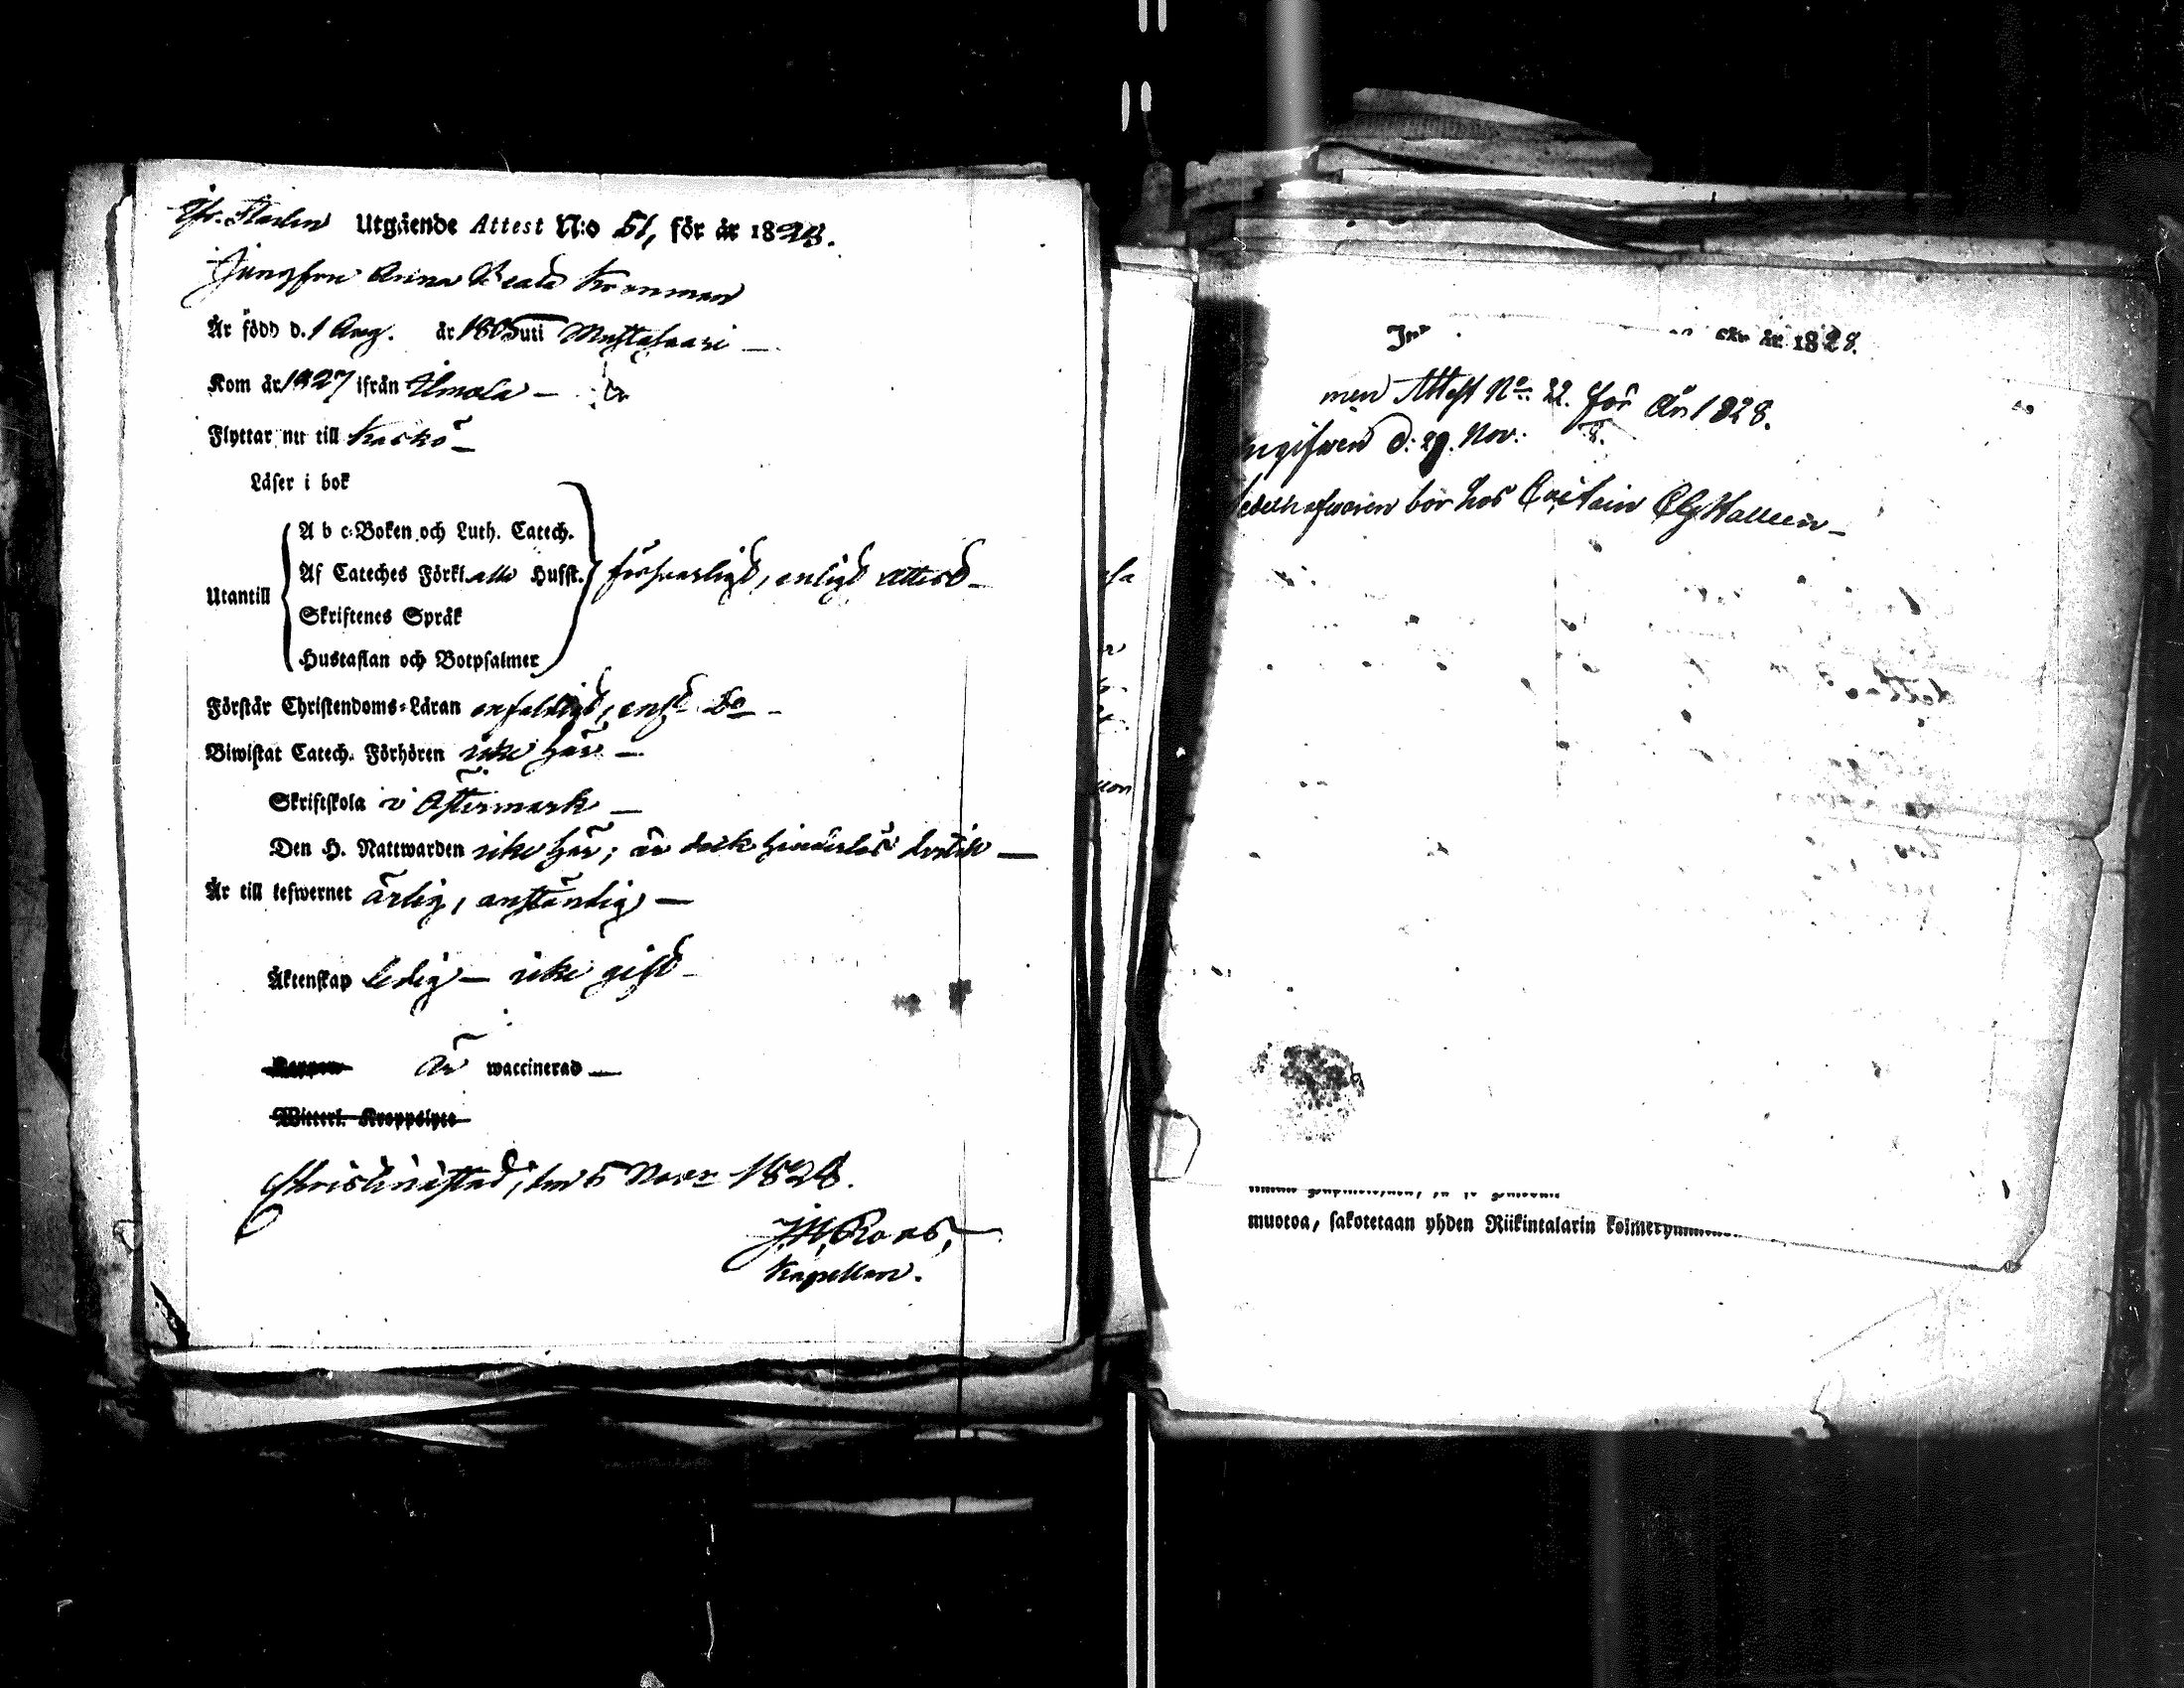 Utgående Attest N:o 51, för år 1828.
Jungfrun Anna Beata Kronman
År född d. 1 Aug. år 1805 uti Mustasaari —
Kom år 1827 ifrån Ilmola —
Flyttar nu till Kaskö —
Läser i bok
A b c-Boken och Luth. Catech.
Af Cateches Förkl. alla Husst. försvarligt, enligt attest —
Utantill
Skriftenes Språk
Hustaflan och Botpsalmer
Förstår Christendoms-Läran enfaldigt, enl. Do —
Biwistat Catech. Förhören icke här —
Skriftskola i Östermark —
Den H. Nattwarden icke här; är dock hinderlös dertill —
Är till lefwernet ärlig, anständig —
Äktenskap ledig — icke gift —
är waccinerad —
Witterl. Kroppslyte
Christinestad, den 5 Novr 1828.
J.M. Roos,
Kapellan.
för år 1828.
Attest No 22. för År 1828.
ingifven d: 29. Nov:
bör hos Capitain
muotoa, sakotetaan yhden Riikintalarin